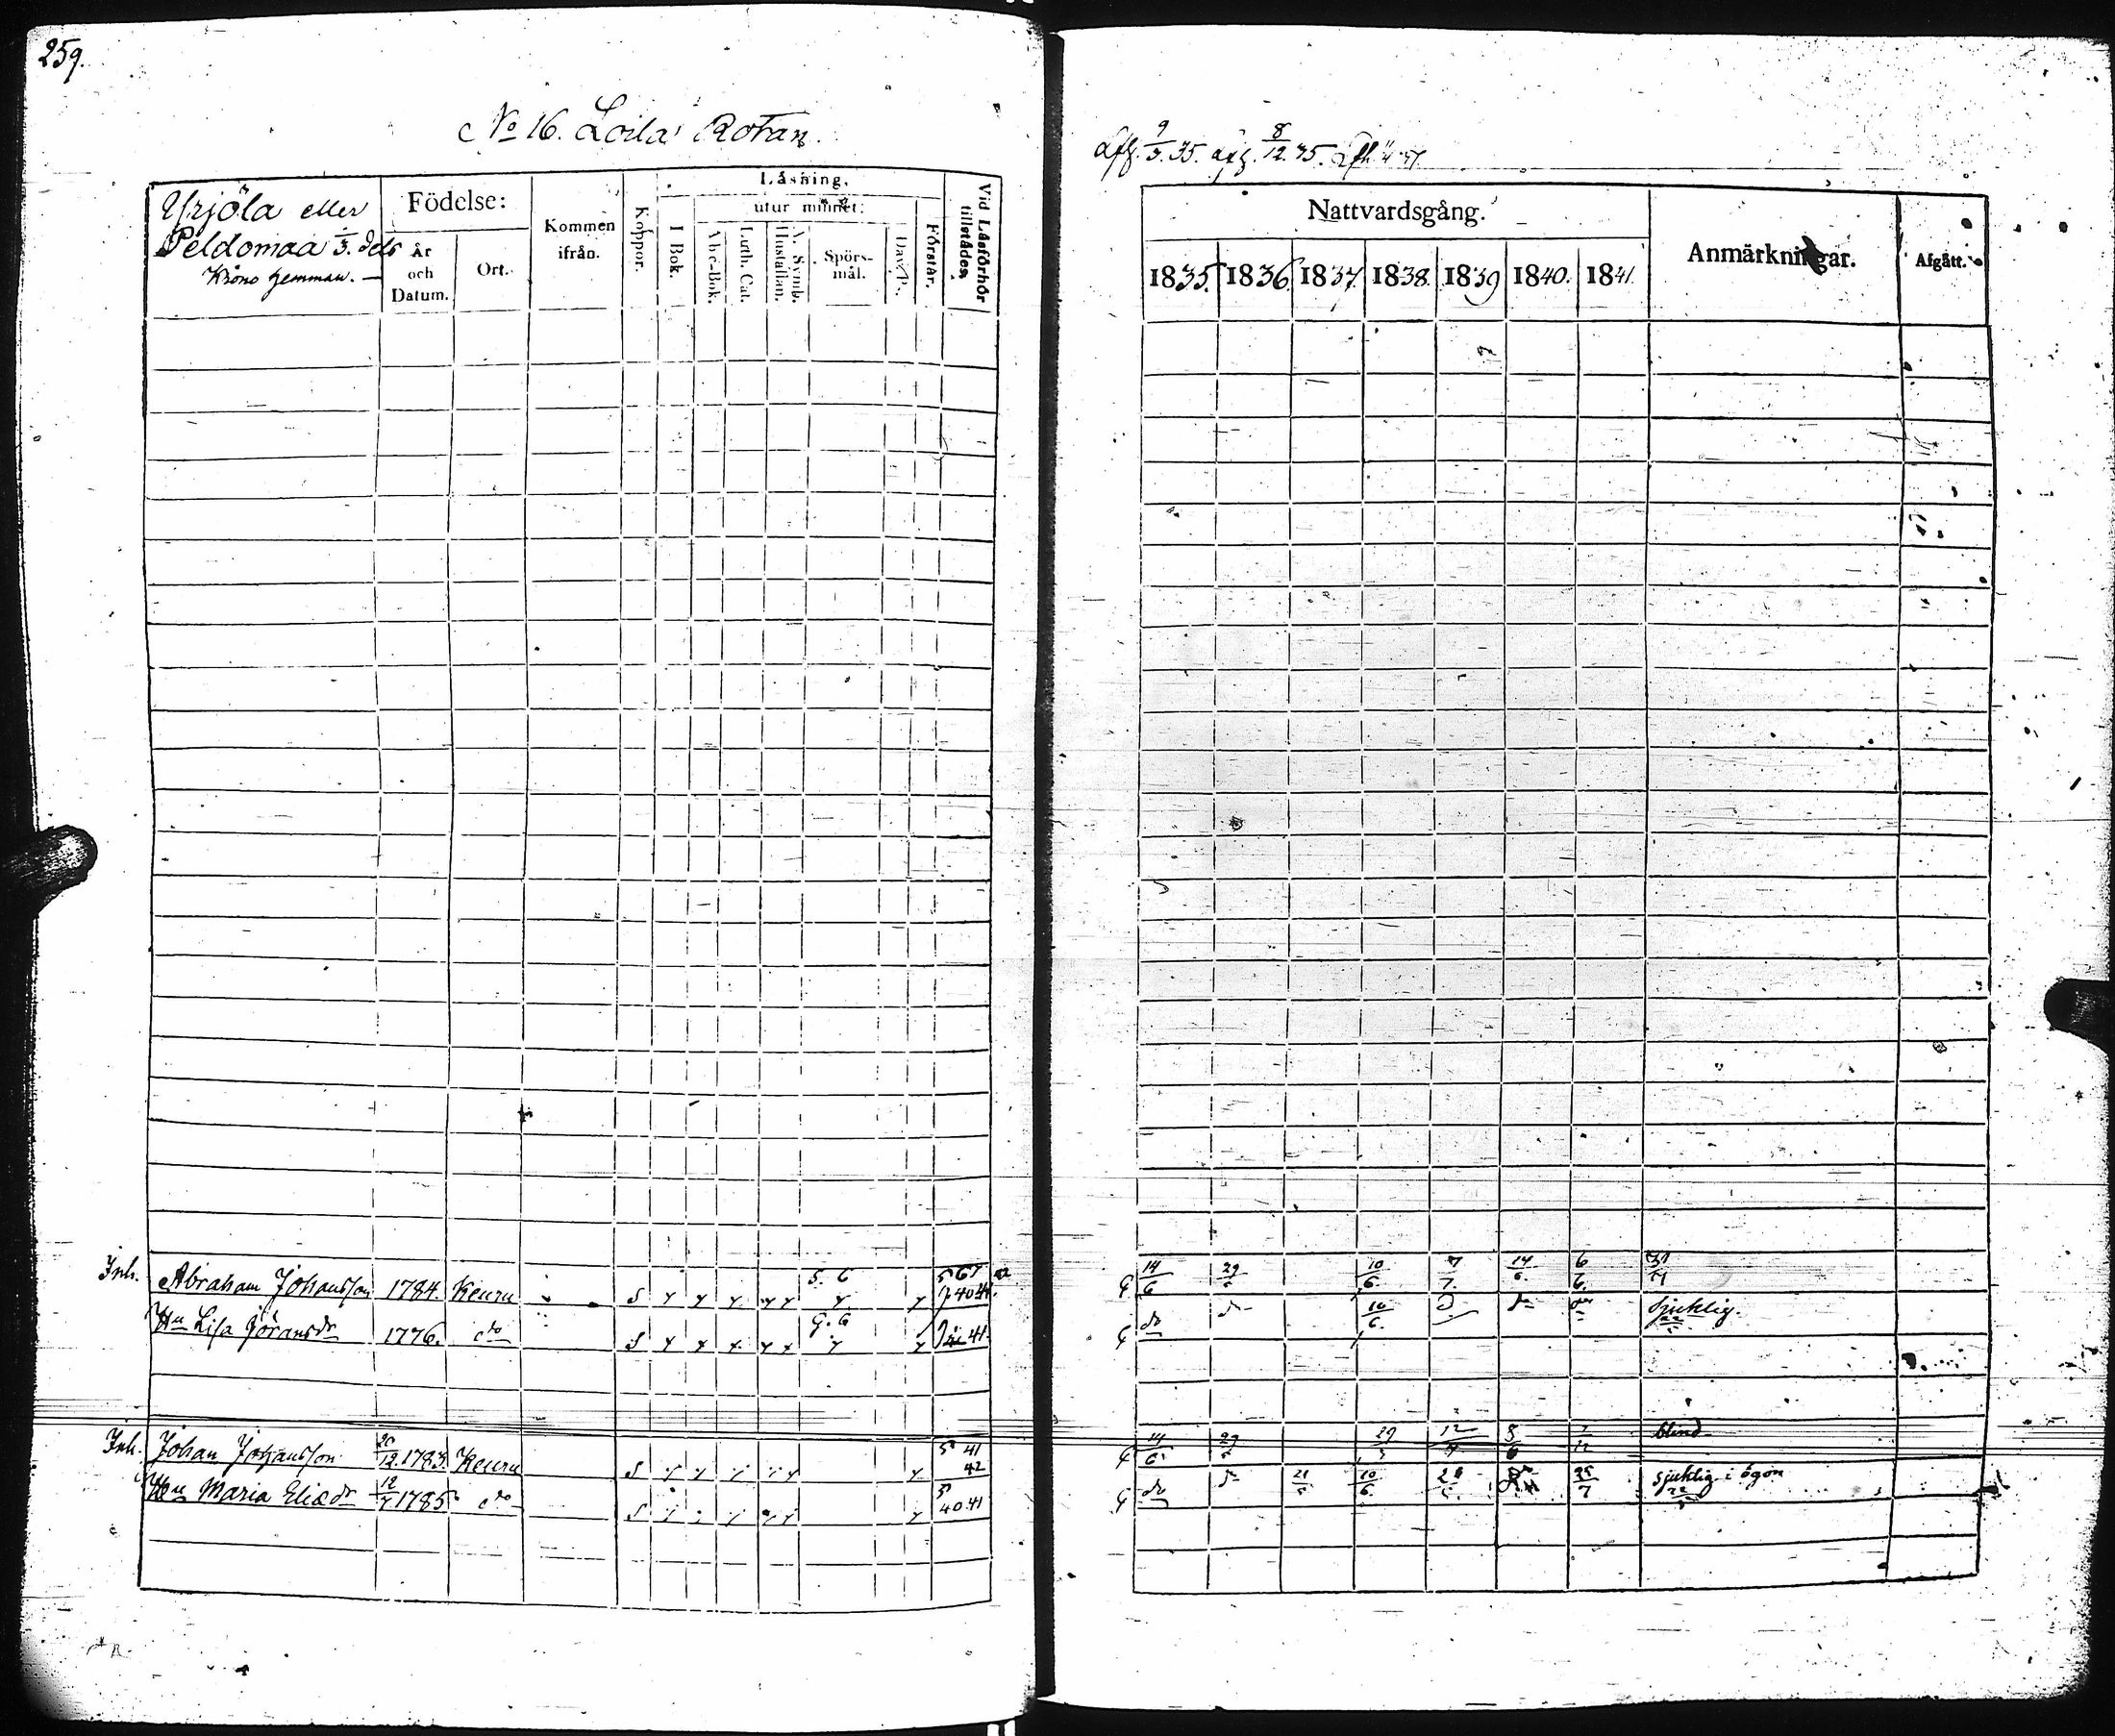 259.
No 16. Loila Rotan.
Yrjölä eller
Peldomaa 1/3. dels
Krono hemman. —
Födelse:
År och Datum.
Ort.
Kommen ifrån.
Koppor.
Låsning,
utur minnet:
I Bok.
Abc-Bok.
Luth. Cat.
A. Symb. Hustaflan.
Spörsmål.
Dav. Ps.
Förstår.
Vid Låsförhör tillstädes.
Inh. Abraham Johansson 1784. Keuru S y y y y y 5. 6 y y 5 67 40 41.
Hu Lisa Göransdr 1776. do S y y y y y 5. 6 y y 41.
Inh. Johan Johansson 20/12. 1783. Keuru S y y y y y y 5 41 42
Hu Maria Eliædr 12/7 1785 do S y y y y y y 5 40.41
9/3. 35. 8/12. 35.
Nattvardsgång.
1835. 1836. 1837. 1838. 1839 1840. 1841.
Anmärkningar.
Afgått.
G 14/6 29/5 10/6. 7/7. 14/6. 6/6.
G do do 10/6. do do Sjuklig.
G 14/6. 29/5 29/5 12/7 8/6 blind
G do do 21/5 10/6. 25/7 sjuklig i ögon